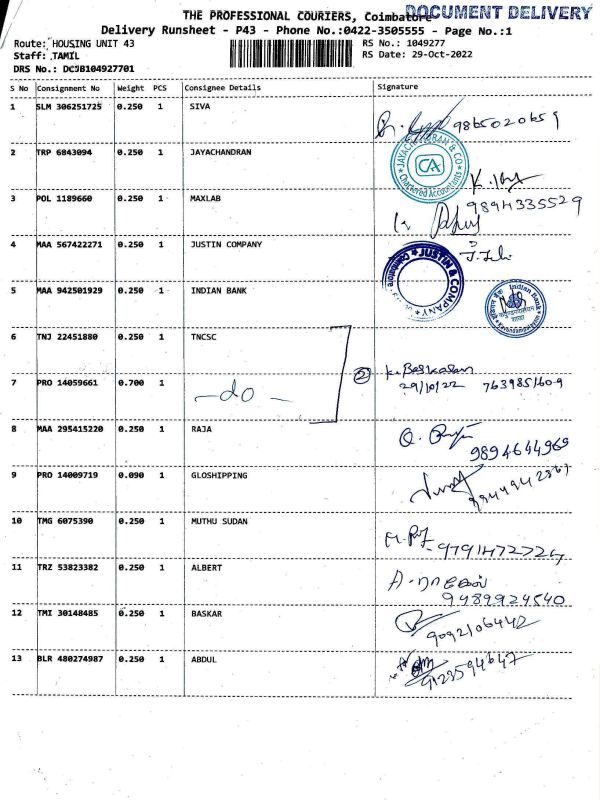 THE PROFESSIONAL COURIERS, Coimbatore
DOCUMENT DELIVERY
Delivery Runsheet - P43 - Phone No.:0422-3505555 - Page No.:1
Route: HOUSING UNIT 43
RS No.: 1049277
Staff: TAMIL
RS Date: 29-Oct-2022
DRS No.: DCJB104927701
S No Consignment No Weight PCS Consignee Details Signature
1 SLM 306251725 0.250 1 SIVA 9865020659
2 TRP 6843094 0.250 1 JAYACHANDRAN
JAYACHANDRAN & CO
CA
Chartered Accountants
3 POL 1189660 0.250 1 MAXLAB 9894335529
4 MAA 567422271 0.250 1 JUSTIN COMPANY
JUSTIN & COMPANY
Coimbatore
5 MAA 942501929 0.250 1 INDIAN BANK
Indian Bank
6 TNJ 22451880 0.250 1 TNCSC
2 K. Baskaran
7 PRO 14059661 0.700 1 -do- 29/10/22 7639851609
8 MAA 295415220 0.250 1 RAJA
9894644969
9 PRO 14009719 0.090 1 GLOSHIPPING
10 TMG 6075390 0.250 1 MUTHU SUDAN
9791472724
11 TRZ 53823382 0.250 1 ALBERT
9489924540
12 TMI 30148485 0.250 1 BASKAR 9092106442
13 BLR 480274987 0.250 1 ABDUL 9123594647